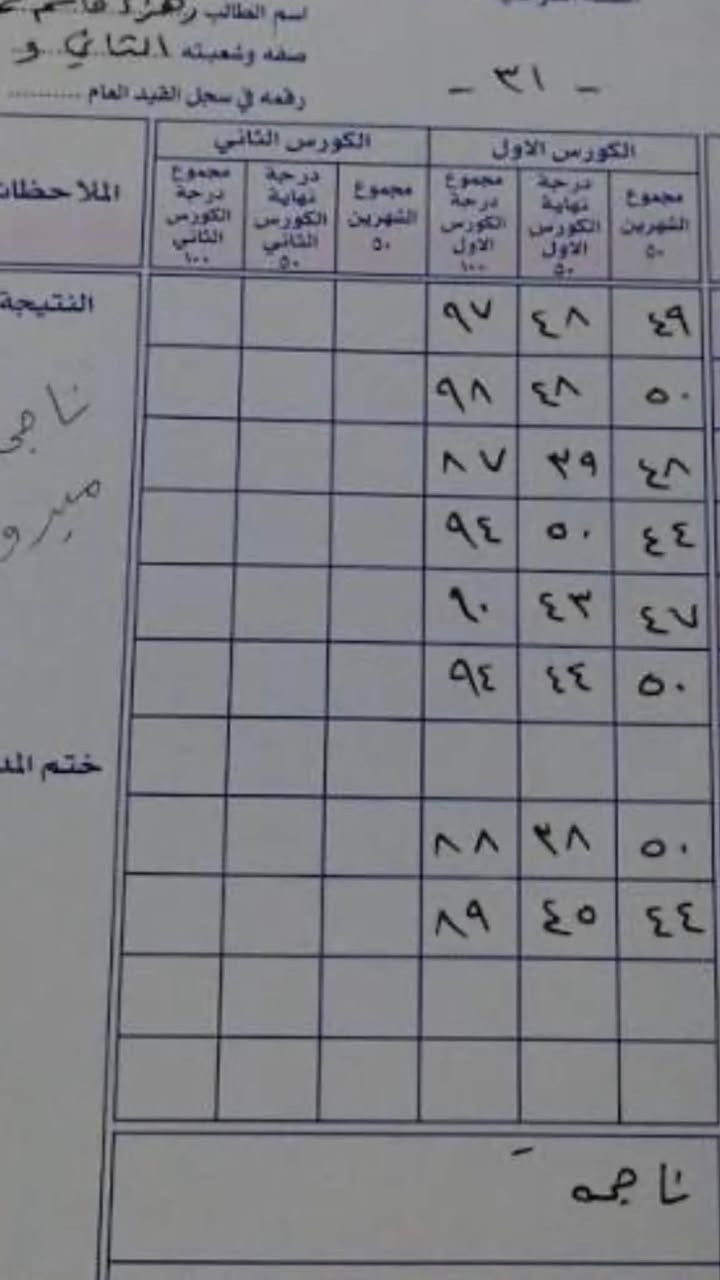 اسم الطالب زهراء قاسم
صفه وشعبته الثاني و
رقمه في سجل القيد العام ..........
- ٣١ -
الكورس الاول الكورس الثاني الملاحظات
مجموع الشهرين ٥٠ درجة نهاية الكورس الاول ٥٠ مجموع درجة الكورس الاول ١٠٠ مجموع الشهرين ٥٠ درجة نهاية الكورس الثاني ٥٠ مجموع درجة الكورس الثاني ١٠٠
٤٩ ٤٨ ٩٧ النتيجة
٥٠ ٤٨ ٩٨
٤٨ ٣٩ ٨٧
٤٤ ٥٠ ٩٤
٤٧ ٤٣ ٩٠
٥٠ ٤٤ ٩٤
ختم
٥٠ ٣٨ ٨٨
٤٤ ٤٥ ٨٩
ناجحه